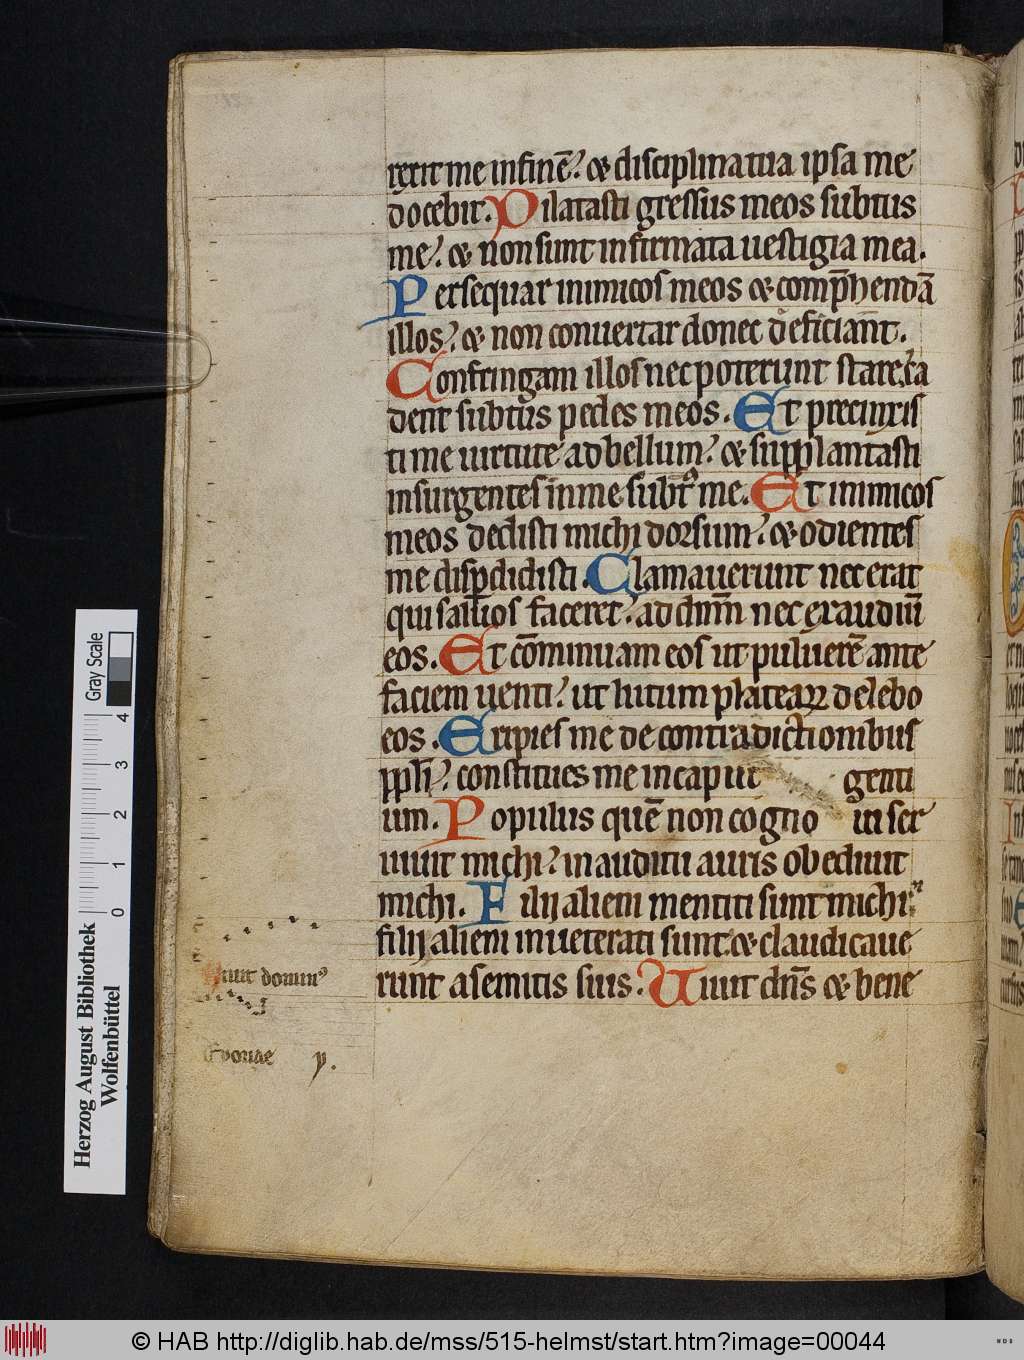 rexit me in finē. & disciplina tua ipsa me
docebit. Dilatasti gressus meos subtus
me. & non sunt infirmata uestigia mea.
Persequar inimicos meos & comp̄hendā
illos. & non conuertar donec deficiant.
Confringam illos nec poterunt stare. ca
dent subtus pedes meos. Et precinxis
ti me uirtute ad bellum. & supplantasti
insurgentes in me subtꝰ me. Et inimicos
meos dedisti michi dorsum. & odientes
me disꝑdidisti. Clamauerunt nec erat
qui saluos faceret. ad dn̄m nec exaudiuī
eos. Et cōminuam eos ut puluerē ante
faciem uenti. ut lutum plateaꝝ delebo
eos. Eripies me de contradictionibus
pp̄li. constitues me in caput genti
um. Populus quē non cogno ui ser
uiuit michi. in auditu auris obediuit
michi. Filij alieni mentiti sunt michi.
filij alieni inueterati sunt. & claudicaue
runt a semitis suis. Uiuit dn̄s & bene
Uiuit dominꝰ
Euouae p.
Gray Scale
0 1 2 3 4
Herzog August Bibliothek
Wolfenbüttel
© HAB http://diglib.hab.de/mss/515-helmst/start.htm?image=00044